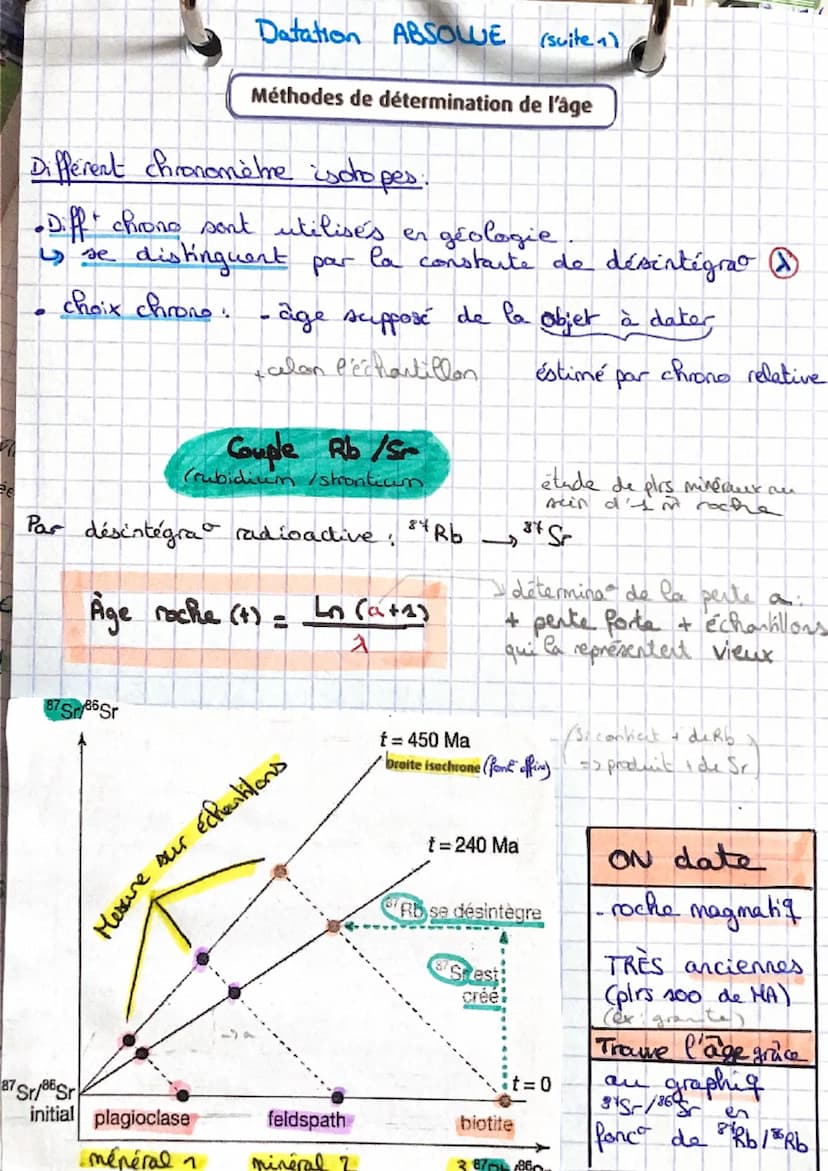 Datation ABSOLUE (suite 1)
Méthodes de détermination de l'âge
Différent chronomètre isotopes:
• Diff^t chrono sont utilisés en géologie.
↳ se distinguent par la constante de désintégra° λ
• choix chrono : - âge supposé de la objet à dater
+ selon l'échantillon
estimé par chrono relative
Couple Rb /Sr
(rubidium /strontium
étude de plrs minéraux au
sein d'1 m̂ roche
Par désintégra° radioactive : ⁸⁷Rb → ⁸⁷Sr
Âge roche (t) = Ln (a+1)
λ
détermina° de la pente a :
+ pente forte + échantillons
qui la représentent vieux
⁸⁷Sr/⁸⁶Sr
t = 450 Ma
Droite isochrone (fonc° affine)
(si contient + de Rb
=> produit + de Sr)
Mesure sur échantillons
t = 240 Ma
⁸⁷Rb se désintègre
⁸⁷Sr est
créé
-> a
t = 0
⁸⁷Sr/⁸⁶Sr
initial
plagioclase
feldspath
biotite
ménéral 1
minéral 2
3
⁸⁷Rb/⁸⁶Sr
ON date
- roche magmatiq
TRÈS anciennes
(plrs 100 de MA)
(ex : granite)
Trouve l'âge grâce
au graphiq
⁸⁷Sr/⁸⁶Sr en
fonc° de ⁸⁷Rb/⁸⁶Rb